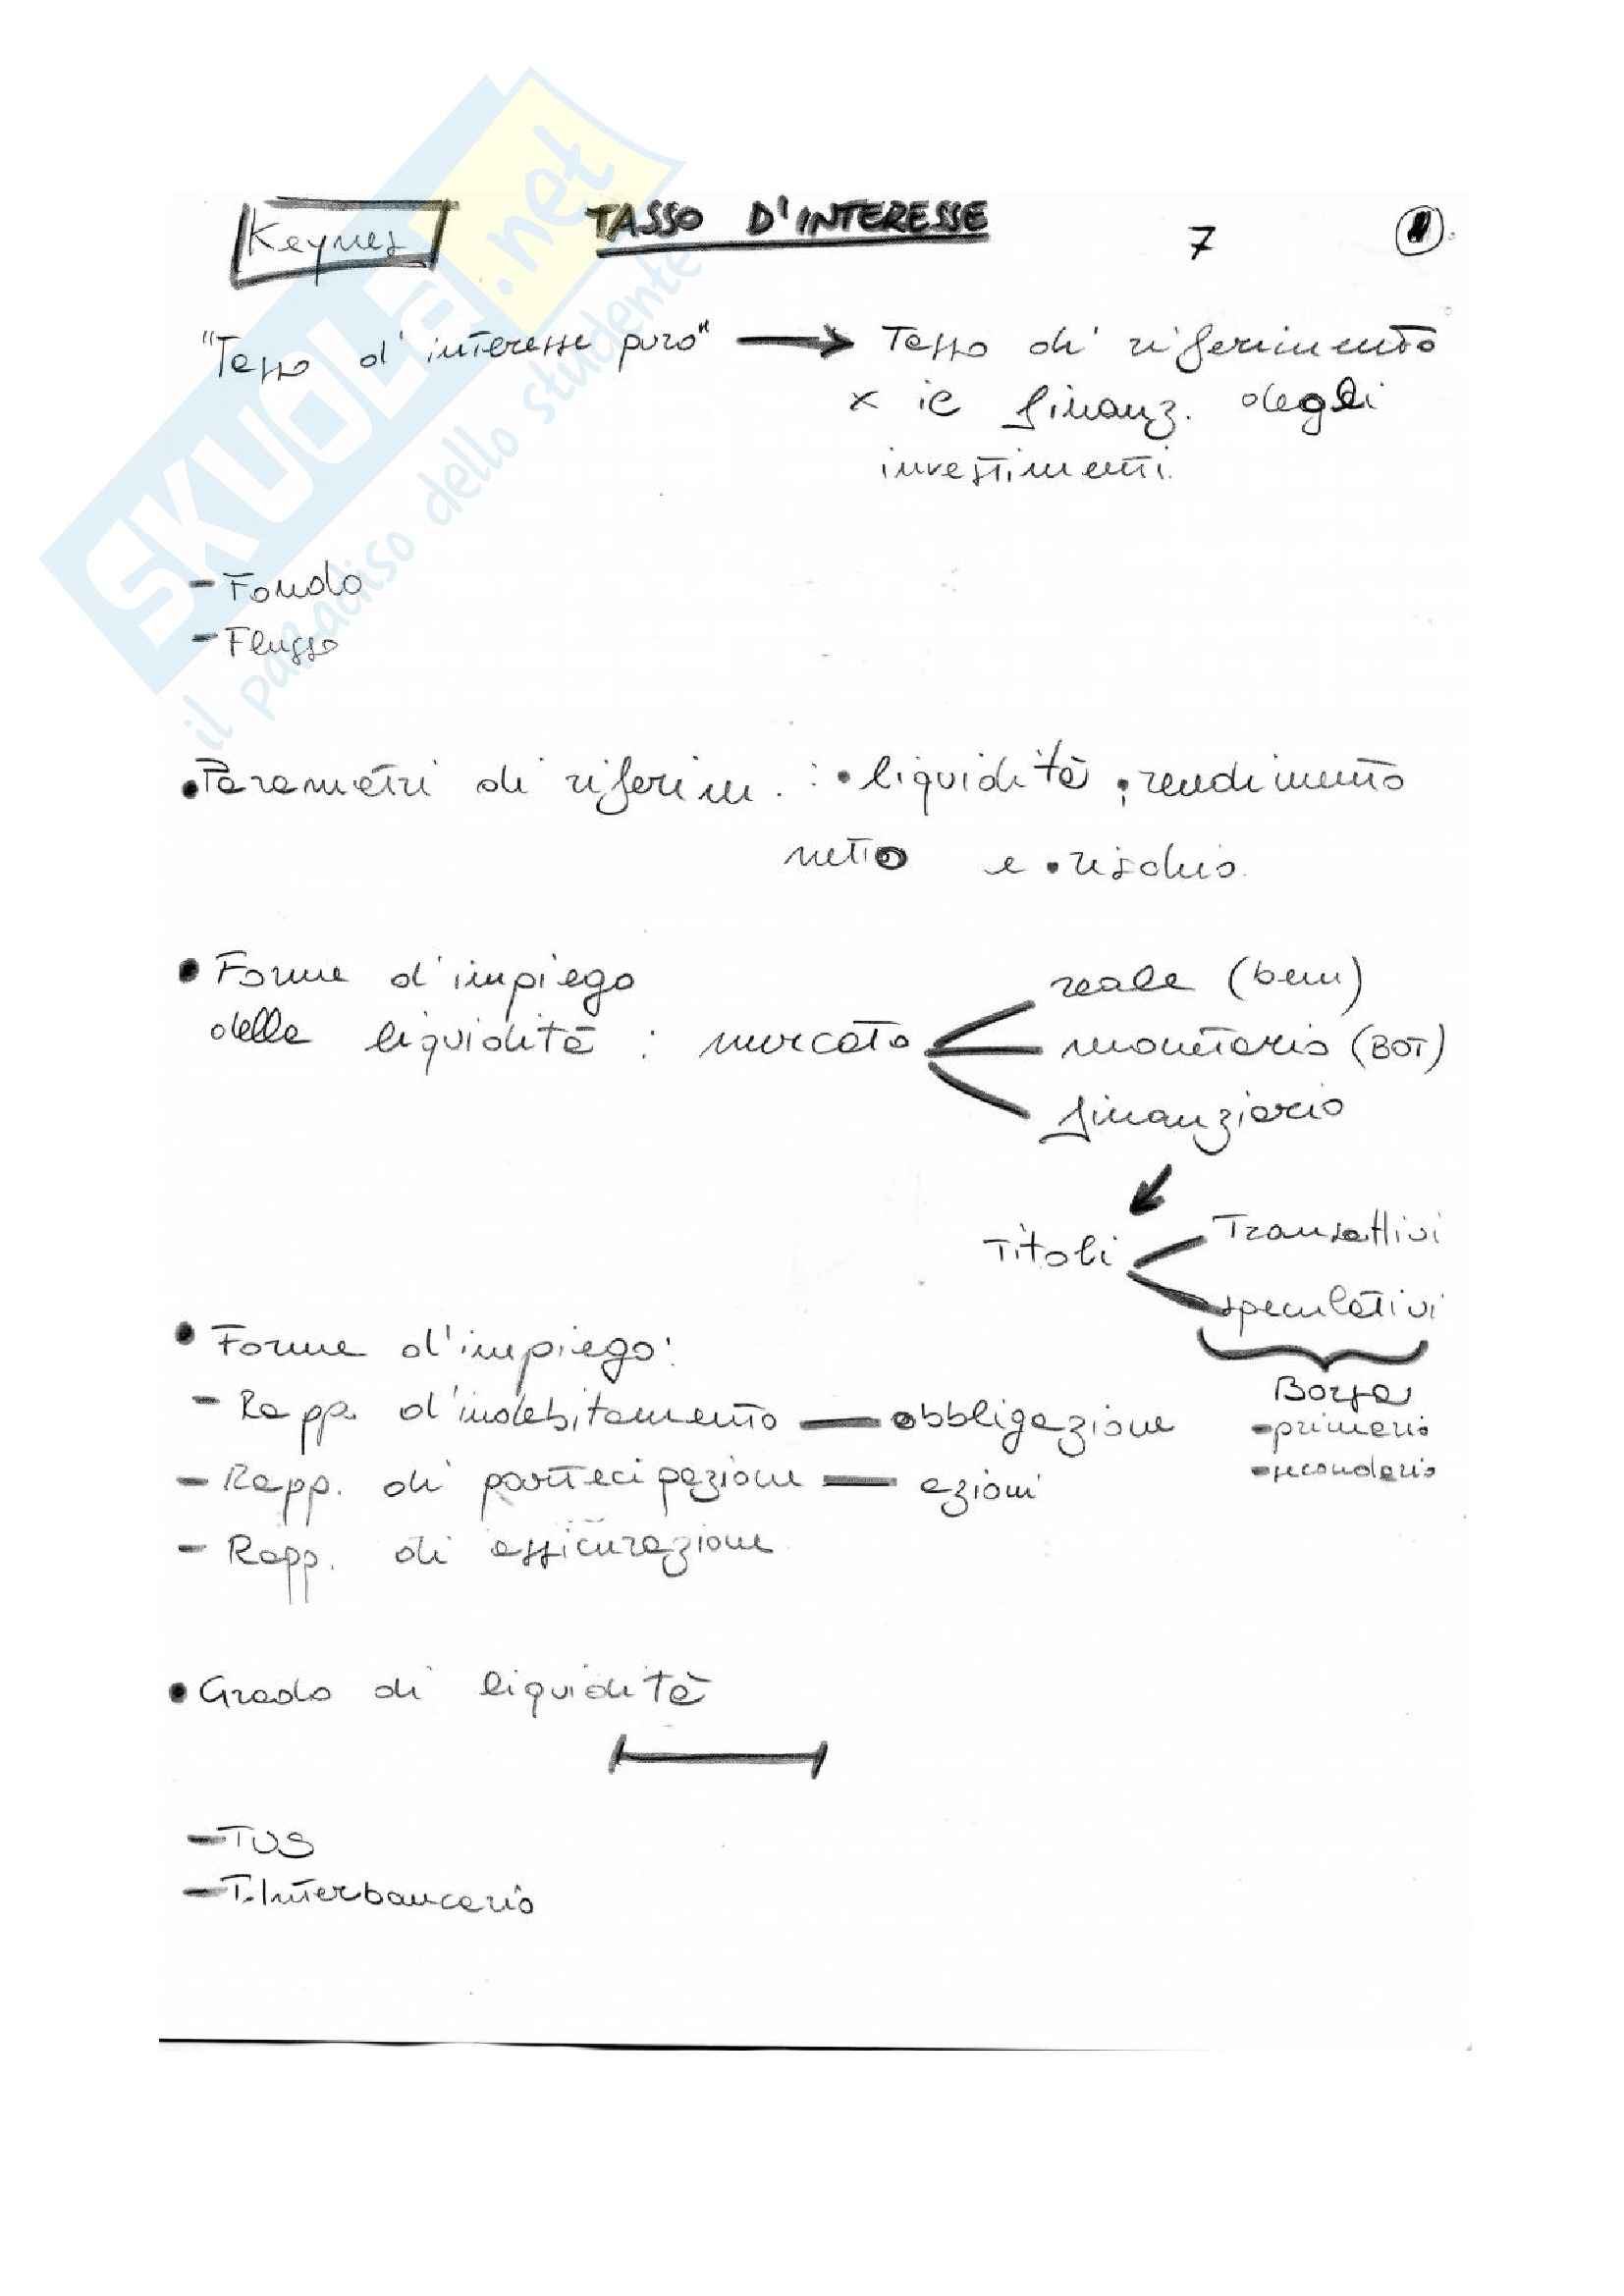 Keynes
TASSO D'INTERESSE
7
"Tasso d'interesse puro" → Tasso di riferimento
x il finanz. degli
investimenti.
- Fondo
- Flusso
• Parametri di riferim. : • liquidità, • rendimento
netto e • rischio.
• Forme d'impiego
della liquidità : mercato
reale (beni)
monetario (BOT)
finanziario
Titoli
Transattivi
speculativi
Borsa
- primario
- secondario
• Forme d'impiego:
- Rapp. d'indebitamento — obbligazione
- Rapp. di partecipazione — azioni
- Rapp. di assicurazione
• Grado di liquidità
- TUS
- T. Interbancario
SKUOLA.net
il paradiso dello studente